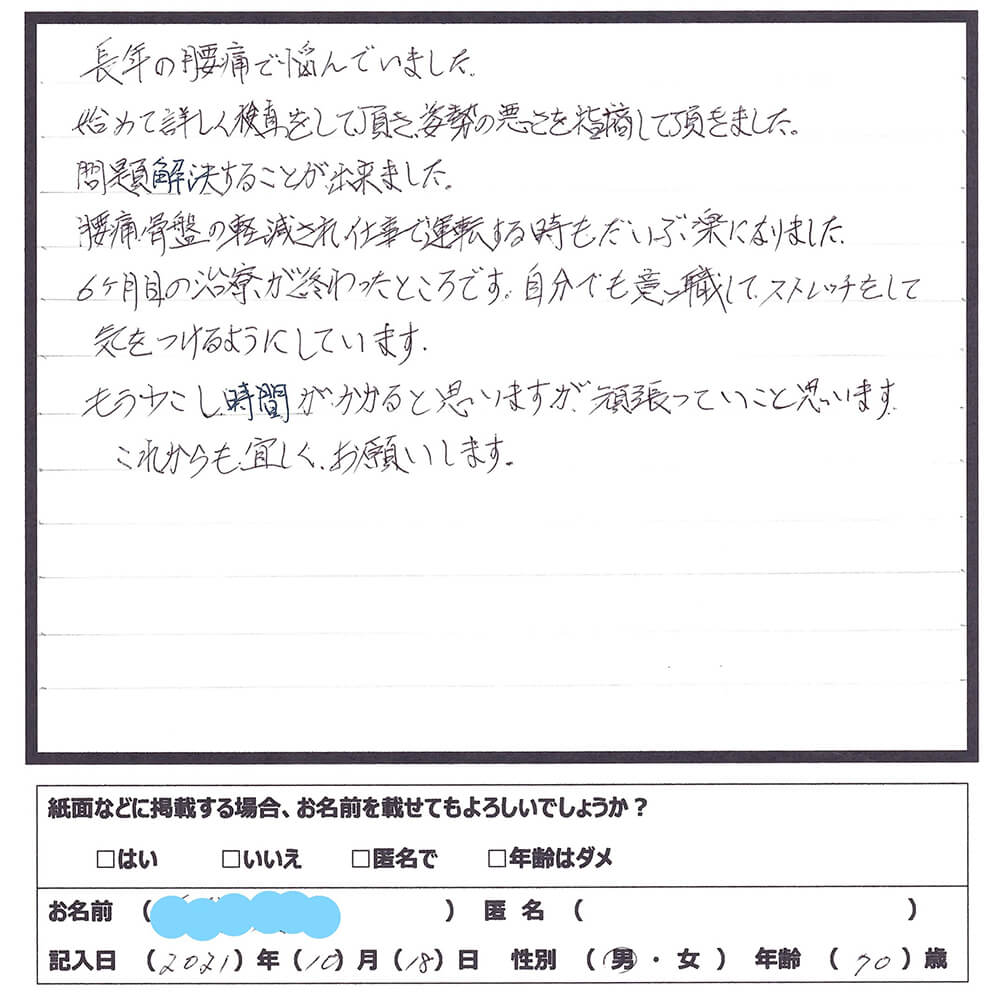 長年の腰痛で悩んでいました。
始めて詳しく検査をして頂き、姿勢の悪さを指摘して頂きました。
問題解決することが出来ました。
腰痛、骨盤の軽減され仕事で運転する時もだいぶ楽になりました。
6ヶ月目の治療が終わったところです。自分でも意職して、ストレッチをして
気をつけるようにしています。
もう少こし時間がかかると思いますが、頑張っていこと思います。
これからも、宜しく、お願いします。
紙面などに掲載する場合、お名前を載せてもよろしいでしょうか？
□はい □いいえ □匿名で □年齢はダメ
お名前 （ ） 匿名 （ ）
記入日 （2021）年（10）月（18）日 性別 （男・女） 年齢 （70）歳